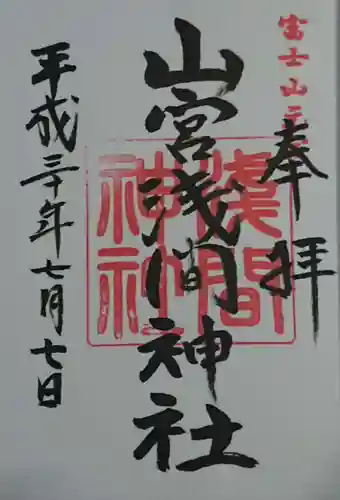 富士山元
奉拝
山宮浅間神社
浅間神社
平成三十年七月七日